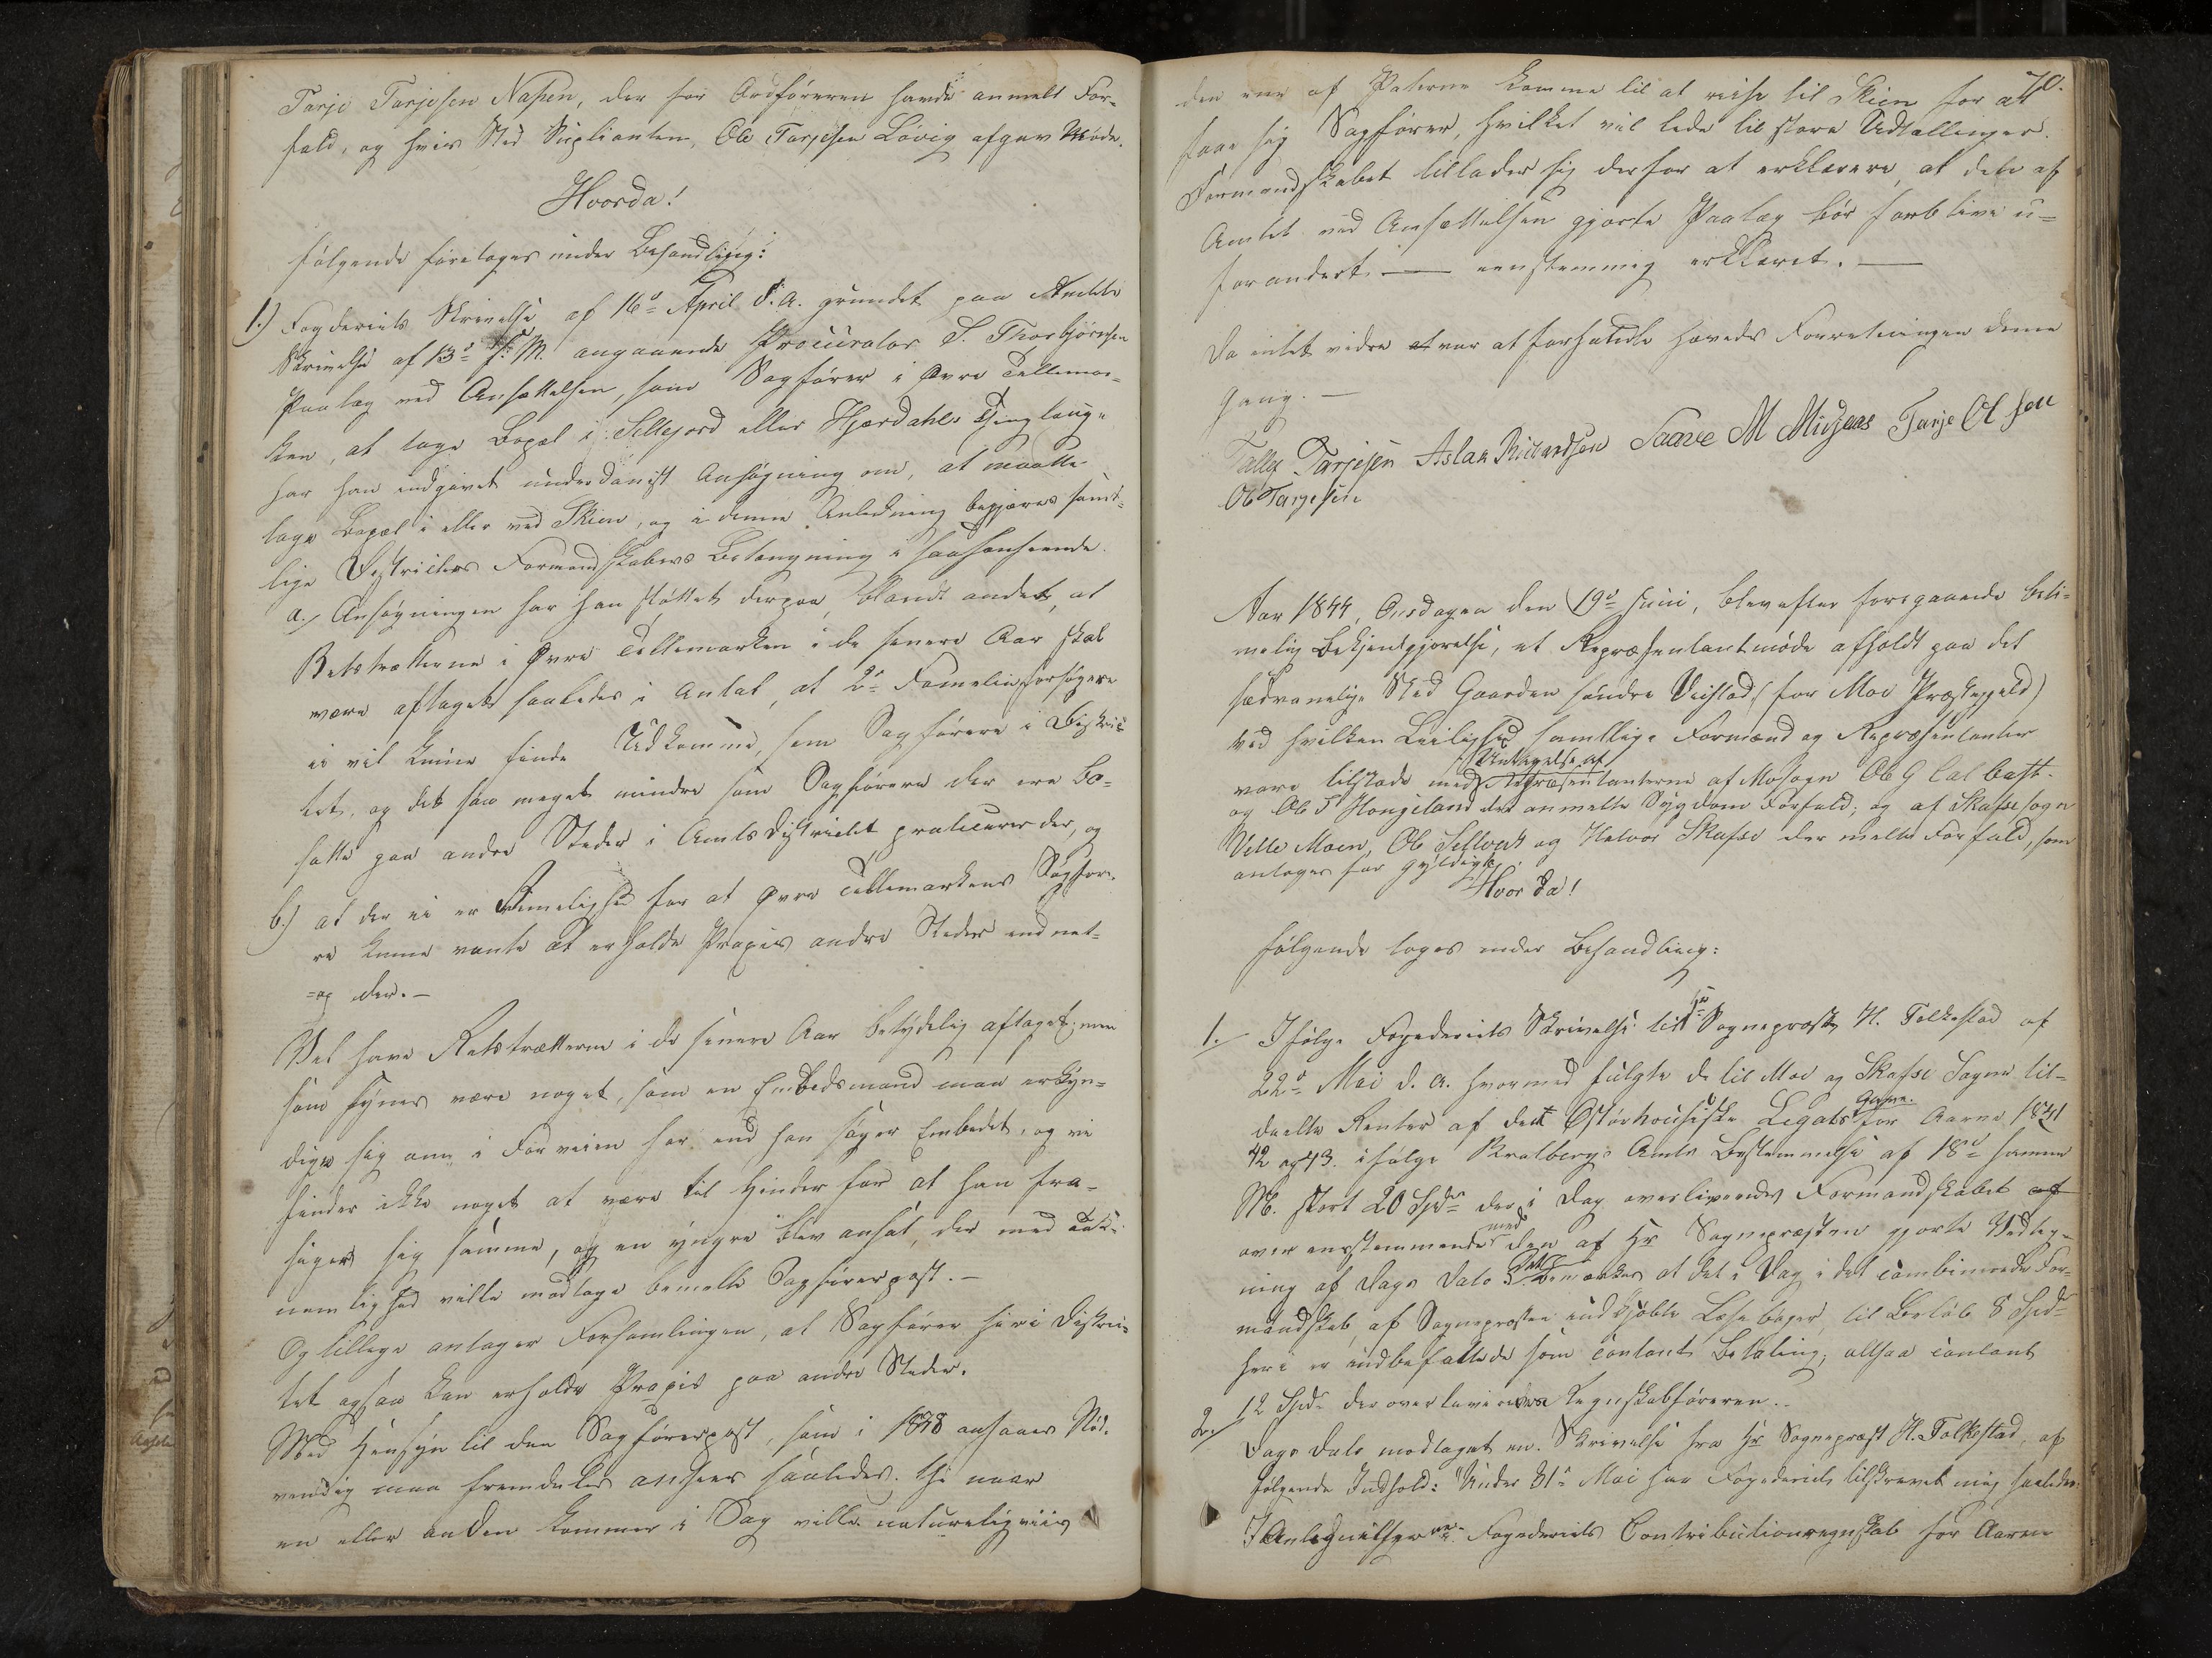 Tarje Tarjesen Napen, der for Ordføreren havde anmelt For-
fald, og hvis Sted Suplianten, Ole Tarjesen Løvig afgav Møde.
Hvorda!
følgende foretoges under Behandling:
1.) Fogderiets Skrivelse af 16de April d. A. grundet paa Amtets
Skrivelse af 13de s. M. angaaende Procurator S. Thorbjørnsen
Paalæg ved Ansættelsen, som Sagfører i Øvre Tellemar-
ken, at tage Bopæl i Sillejord eller Hjærdahls Thinglaug
har han indgivet underdanigst Ansøgning om, at maatte
tage Bopæl i eller ved Skien, og i denne Anledning begjæres samt-
lige Districters Formandskabers Betænkning i saahenseende.
a.) Ansøgningen har han støttet derpaa, blandt andet, at
Retstrætterne i Øvre Tellemarken i de senere Aar skal
være aftaget saaledes i Antal, at 2de Familieforsørgere
ei vil kunne finde Udkomme, som Sagførere i Distric-
tet, og det saa meget mindre som Sagførere der ere bo-
satte paa andre Steder i Amtsdistrictet praticerer der, og
b.) at der ei er Rimelighed for at Øvre Tellemarkens Sagføre-
re kunne vente at erholde Praxis andre Steder end net-
=op der.-
Vel have Retstrætterne i de senere Aar betydelig aftaget; men
som synes være noget, som en Embedsmand maa erkyn-
dige sig om i Forveien før end han søger Embedet, og vi
finder ikke noget at være til Hinder for at han fra-
siger sig samme, og en yngre blev ansat, der med Tak-
nemlighed ville modtage bemelte Sagførerpost.-
Og tillige antager Forsamlingen, at Sagfører her i Distric-
tet ogsaa kan erholde Praxis paa andre Steder.
Med Hensyn til den Sagførerpost, som i 1838 ansaaes Nød-
vendig maa fremdeles ansees saaledes. thi naar
en eller anden kommer i Sag ville naturligviis
70.
den ene af Paterne komme til at reise til Skien for at
faae sig Sagfører, hvilket vil lede til store Udtællinger.
Formandskabet tillader sig derfor at erklærere, at dete af
Amtet ved Ansættelsen gjorte Paalæg bør forblive u-
forandert — eenstemmig erklæret. —
Da intet vidre at var at forhandle hævedes Forretningen denne
Gang. —
Tallef Tarjesen Aslak Rickardsen Saave M Midjaas Tarje Olsen
Ol Tarjesen
Aar 1844, Onsdagen den 19de Juni, blev efter foregaaende beti-
melig Bekjentgjørelse, et Repræsentantmøde afholdt paa det
sædvanelige Sted Gaarden søndre Veistad (for Moe Præstegjeld)
ved hvilken Leilighed samtlige Formænd og Repræsentanter
vare tilstæde med Undtagelse af Repræsentanterne af Mosogn Ole G
og Ole T Haugeland der anmelte Sygdom Forfald; og af Skafsesogn
Vetle Moen, Ole Sellvert og Halvor Skafse der melte Forfald, som
antages for gyldigt.
Hvor da!
følgende toges under Behandling:
1. Ifølge Fogederiets Skrivelse til Hr Sogneprest H. Folkestad af
22de Mai d. A. hvormed fulgte de til Moe og Skafse Sogne til-
deelte Renter af det Legats for Aarene 1841
42 og 43. ifølge Bratsbergs Amts Bestemmelse af 18de samme
M. stort 20 Spd der i Dag overleveredes Formandskabet af
overensstemmende med den af Hr Sognepræsten gjorte Vedteg-
ning af Dags Dato bemærkes at det i Dag i det combinerede For-
mandskab, af Sognepresten indkjøbte Læsebøger, til Beløb 8 Spd
heri er indbefattede som contant Betaling, altsaa contant
12 Spd der overleveredes Regnskabføreren.
2. Dags Dato modtaget en Skrivelse fra Hr Sogneprest H. Folkestad af
følgende Indhold: "Under 31te Mai har Fogderiets tilskrevet mig saaledes:
Fogederiets Contributionregnskab for Aaren